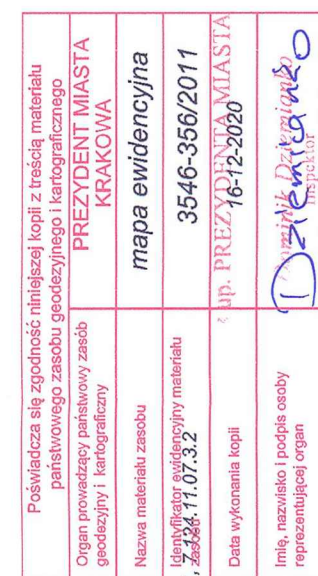 Poświadcza się zgodność niniejszej kopii z treścią materiału
państwowego zasobu geodezyjnego i kartograficznego
Organ prowadzący państwowy zasób
geodezyjny i kartograficzny
PREZYDENT MIASTA
KRAKOWA
Nazwa materiału zasobu
mapa ewidencyjna
Identyfikator ewidencyjny materiału
zasobu
, 7.124.11.07.3.2
3546-356/2011
Data wykonania kopii
up. PREZYDENTA MIASTA
16-12-2020
Imię, nazwisko i podpis osoby
reprezentującej organ
Dominik Dziemianko
Inspektor
Dziemianko